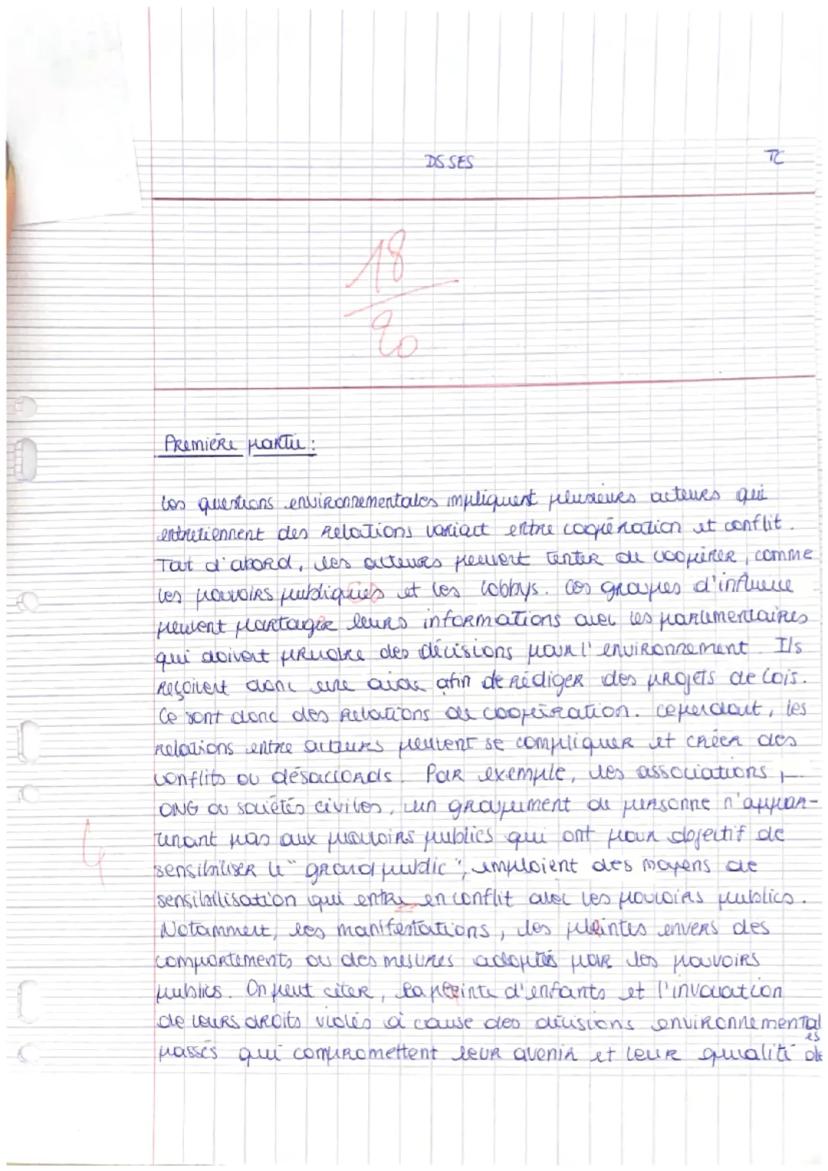 DS SES
TC
18
20
Première partie :
Les questions environnementales impliquent plusieurs acteurs qui
entretiennent des relations variant entre coopération et conflit.
Tout d'abord, les acteurs peuvent tenter de coopérer, comme
les pouvoirs publiques et les lobbys. Ces groupes d'influence
peuvent partager leurs informations avec les parlementaires
qui doivent prendre des décisions pour l'environnement. Ils
reçoivent donc une aide afin de rédiger des projets de lois.
Ce sont donc des relations de coopération. Cependant, les
relations entre acteurs peuvent se compliquer et créer des
conflits ou désaccords. Par exemple, les associations,
ONG ou sociétés civiles, un groupement de personne n'appar-
tenant pas aux pouvoirs publics qui ont pour objectif de
4
sensibiliser le "grand public", emploient des moyens de
sensibilisation qui entre en conflit avec les pouvoirs publics.
Notamment, les manifestations, les pleintes envers des
comportements ou des mesures adoptés par les pouvoirs
publics. On peut citer, la peinte d'enfants et l'invocation
de leurs droits violés à cause des décisions environnemental
es
passés qui compromettent leur avenir et leur qualité de